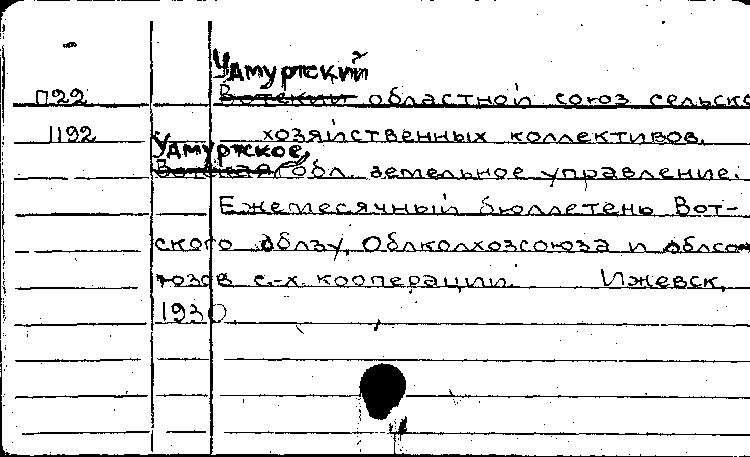 Удмуртский
П22 Вотский областной союз сельско
1192 хозяйственных коллективов.
Удмуртское
Вотская обл. земельное управление.
Ежемесячный бюллетень Вот-
ского облзу, Облколхозсоюза и облсо
юзов с.-х. кооперации. Ижевск,
1930.